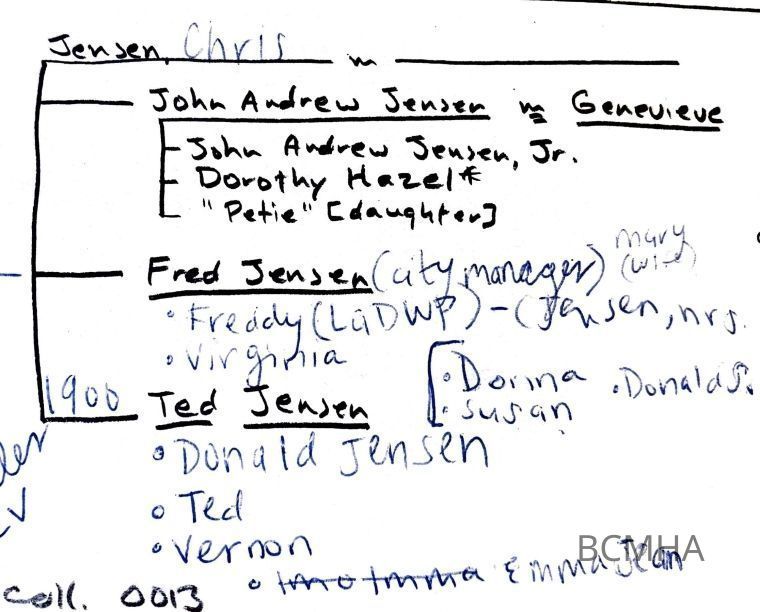 Jensen, Chris m
John Andrew Jensen m Genevieve
John Andrew Jensen, Jr.
Dorothy Hazel*
"Petie" [daughter]
Fred Jensen (city manager) mary (wife)
• Freddy (LADWP) - (Jensen, nrs.
• Virginia
• Donna • Donald S.
• Susan
1900 Ted Jensen
• Donald Jensen
• Ted
• Vernon
• Emma Jean
BCMHA
Coll. 0013